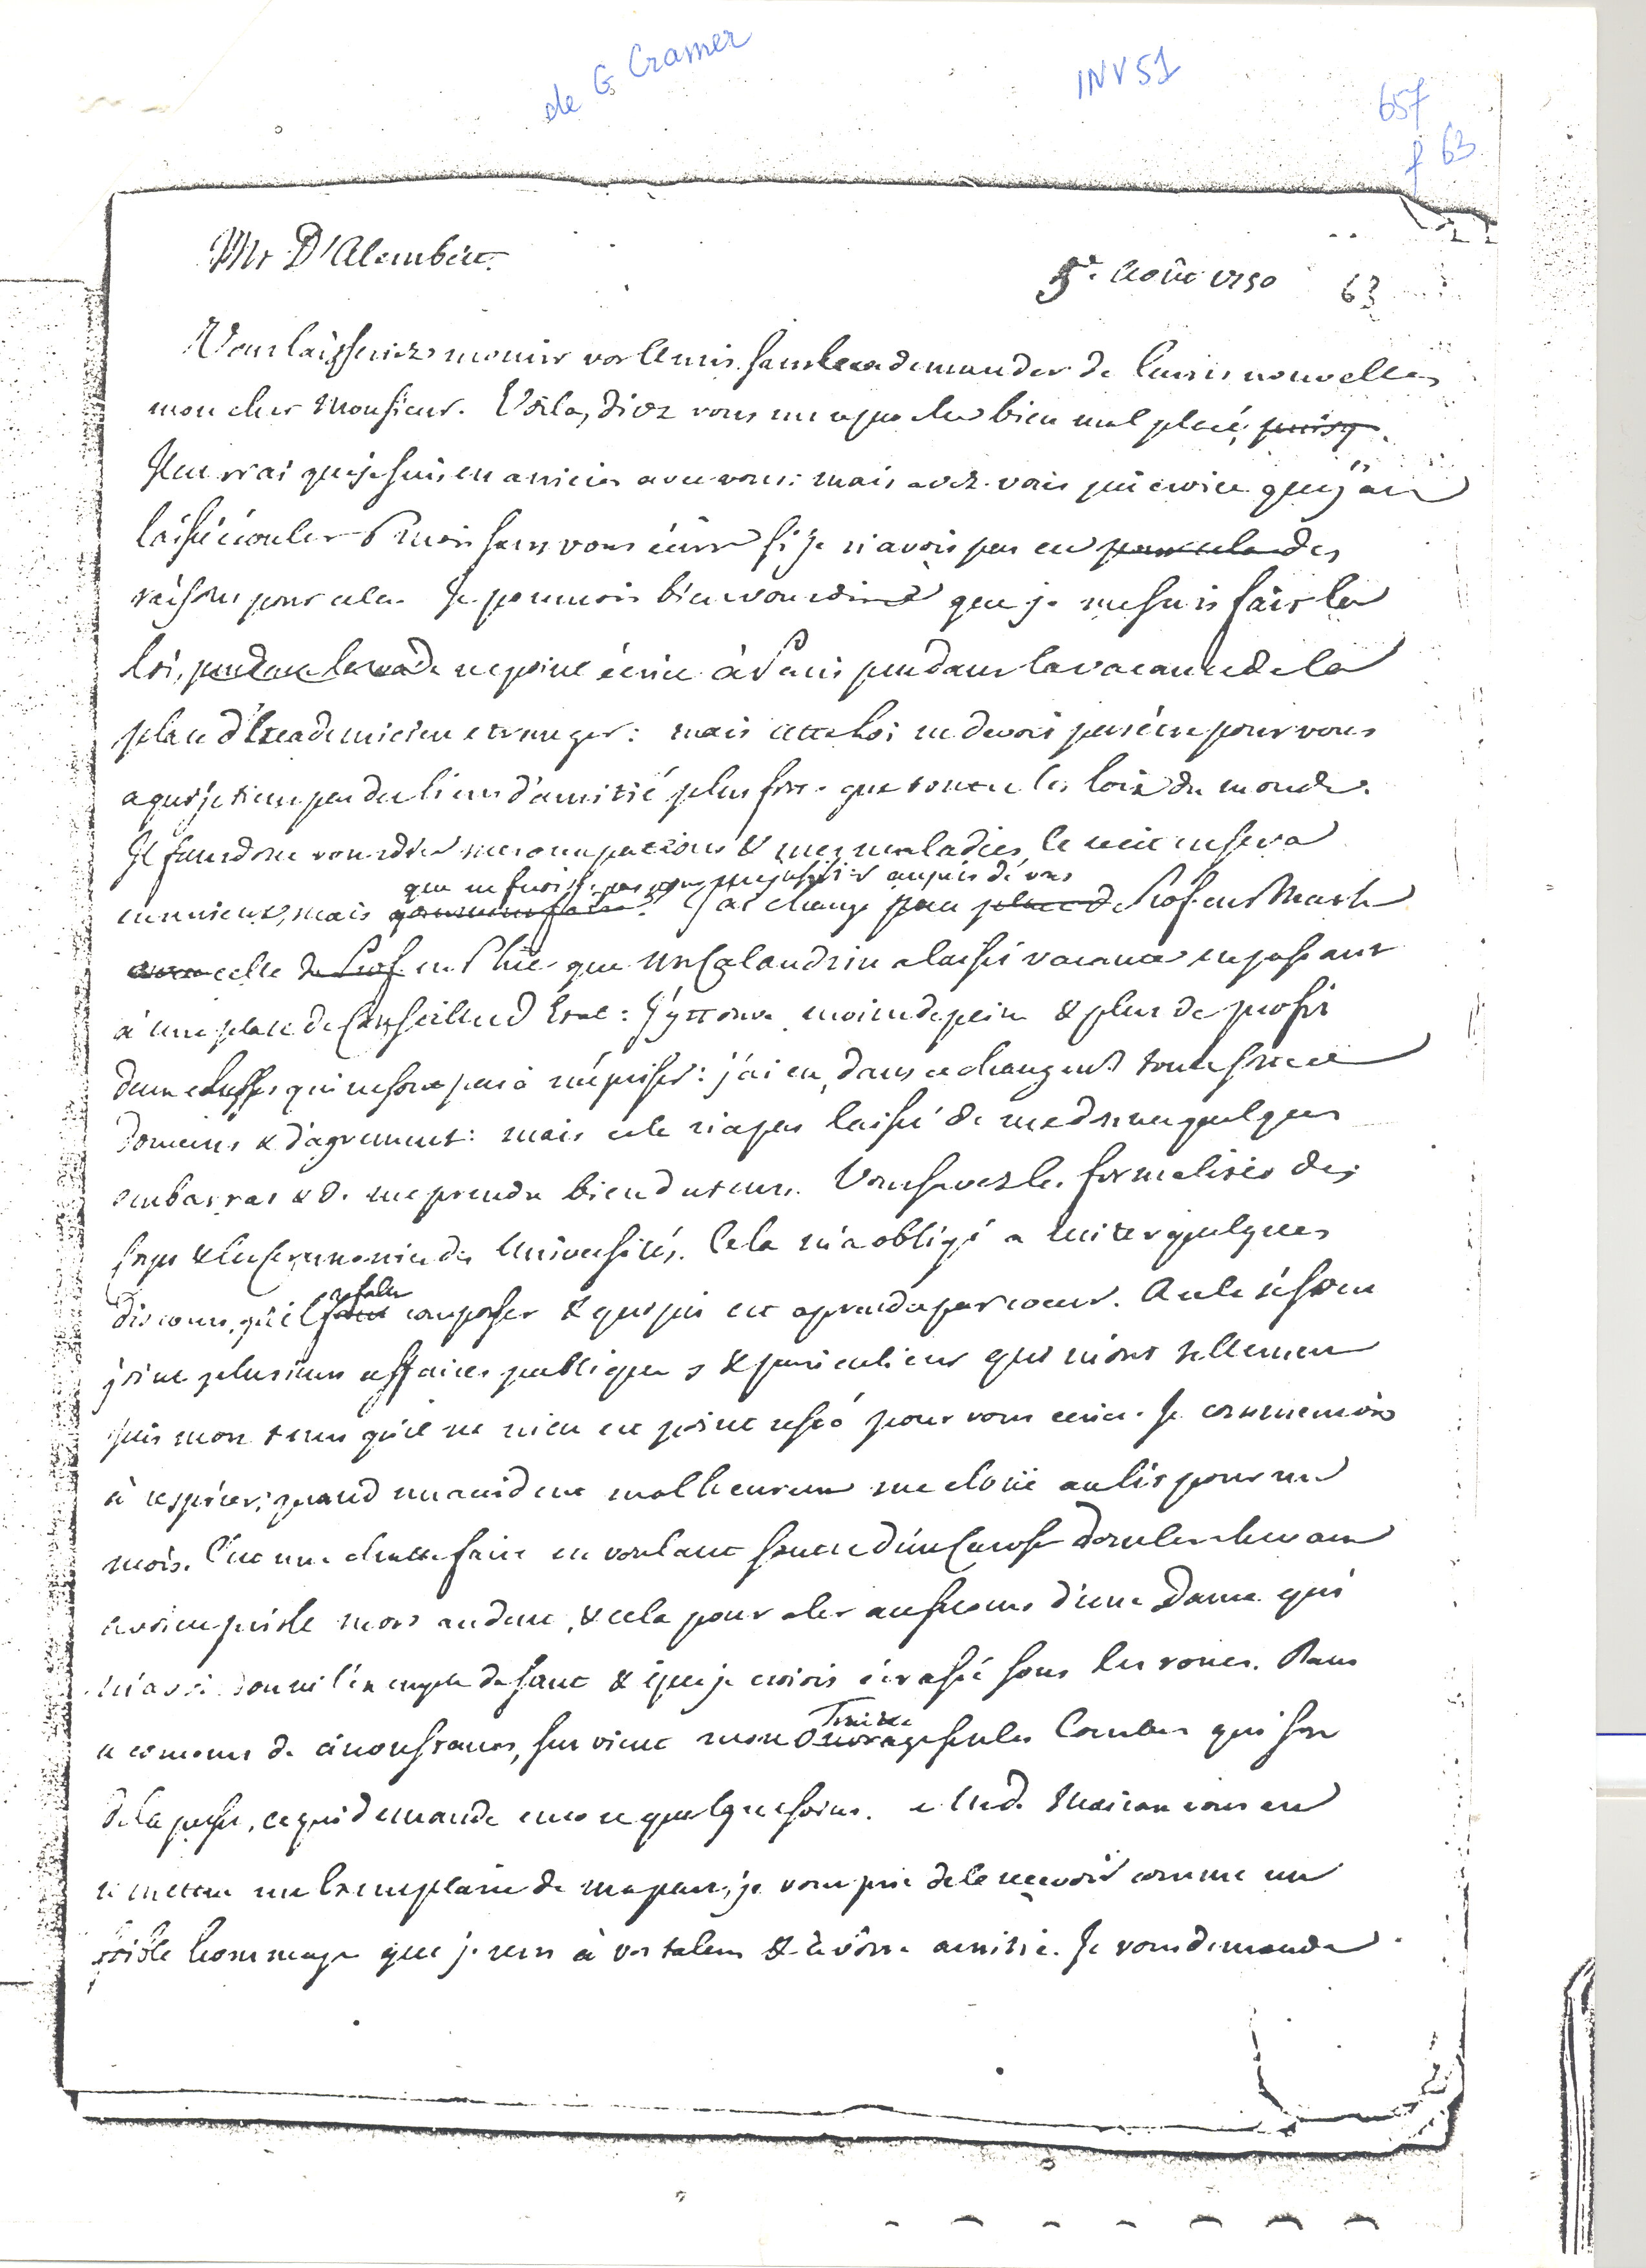 de G Cramer
INV 51
657
f 63
Mr D'Alembert.
5e. Août 1750 63
Vous laisseriez mourir vos Amis sans leur demander de leurs nouvelles
mon cher Monsieur. Voila, direz vous un reproche bien mal placé,
Il est vrai que je suis en arriere avec vous: mais avez-vous pu croire que j'aie
laissé écouler 6 mois sans vous écrire si je n'avois pas eu pour cela des
raisons pour cela. Je pourrois bien vous dire que je me suis fait la
loi, pendant la de ne point écrire à Paris pendant la vacance de la
place d'Academicien etranger: mais cette Loi ne devoit pas être pour vous
a qui je tiens par des liens d'amitié plus forts que toutes les loix du monde.
Il faut donc vous dire mes occupations & mes maladies, le recit en sera
que ne fait-on pas pour se justifier auprès de vous
ennuieux, mais J'ai changé place de Prof. en Math
celle de Prof en Phie que Mr Calandrin a laissé vacante en passant
à une place de Conseiller d'Etat: J'y trouve moins de peine & plus de profit
deux choses qui ne sont pas à mépriser: j'ai eu, dans ce changemt toute sorte
d'omens & d'agrement: mais cela n'a pas laissé de me donner quelques
embarras & de me prendre bien du tems. Vous savez les formalités des
& les Ceremonies des Universités. Cela m'a obligé a reciter quelques
a falu
discours, qu'il faut composer & qui pis est aprendre par coeur. A cela se sont
joint plusieurs affaires publiques & particulieres qui m'ont tellement
pris mon tems qu'il ne m'en est point resté pour vous ecrire. Je commençois
à respirer, quand un accident malheureux me cloüe au lit pour un
mois. C'est une chute faite en voulant sauter d'un Carosse dont les chevaux
avoient pris le mors au dent, & cela pour aler au secours d'une Dame qui
m'avoit donné l'exemple du saut & que je croiois écrasée sous les roues. Dans
ce concours de circonstances, survient mon Ouvrage sur les Courbes qui sort
Traité
de la presse, ce qui demande encore quelques soins. Mr de Mairan vous en
remettra un Exemplaire de ma part, je vous prie de le recevoir comme un
foible hommage que je rens à vos talens & à vôtre amitié. Je vous demande